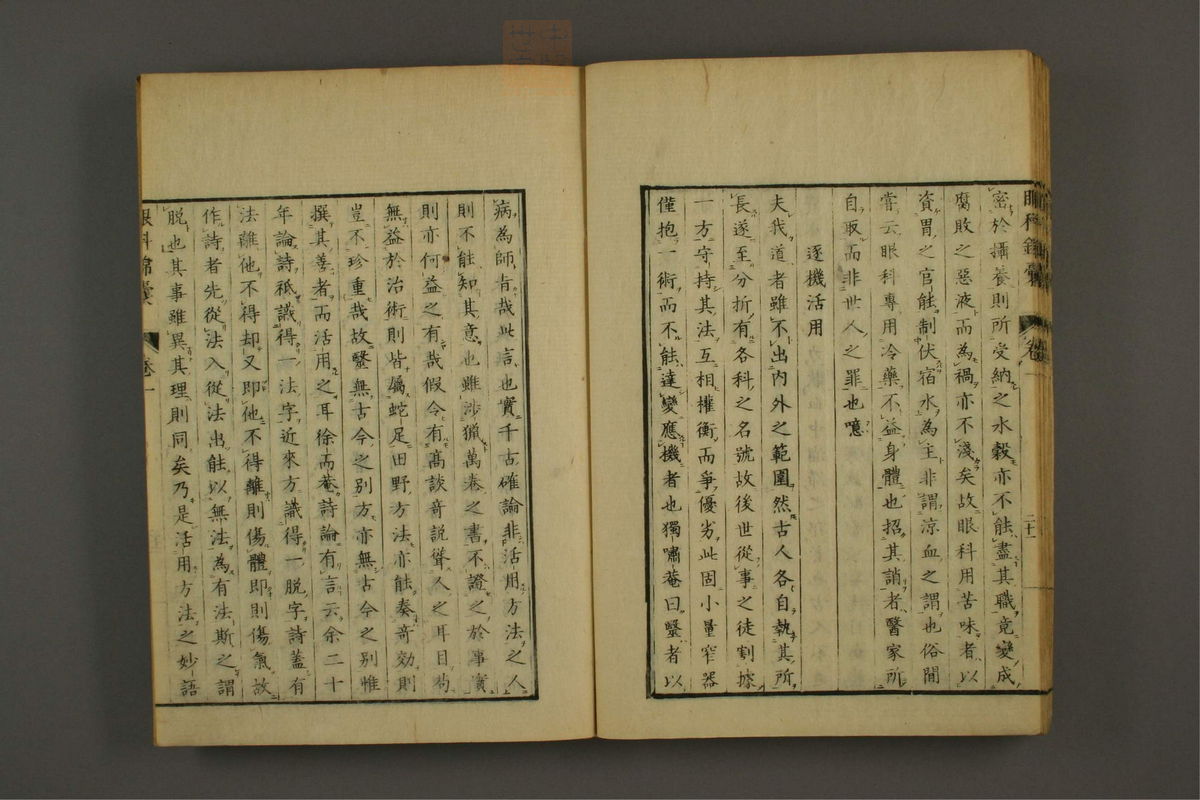 眼科錦囊 卷一 二十一
密於攝養則所受納之水穀亦不能盡其職竟變成
腐敗之惡液而為禍亦不淺矣故眼科用苦味者以
資胃之官能制伏宿水為主非謂涼血之謂也俗間
嘗云眼科專用冷藥不益身體也招其誚者醫家所
自取而非世人之罪也噫
逐機活用
夫我道者雖不出內外之範圍然古人各自執其所
長遂至分折有各科之名號故後世從事之徒割據
一方守持其法互相權衡而爭優劣此固小量窄器
僅抱一術而不能達變應機者也獨嘯菴曰醫者以
病為師旨哉此言也實千古確論非活用方法之人
則不能知其意也雖涉獵萬卷之書不證之於事實
則亦何益之有哉假令有高談奇說聳人之耳目狗
無益於治術則皆屬蛇足田野方法亦能奏奇効則
豈不珍重哉故醫無古今之別方亦無古今之別惟
撰其善者而活用之耳徐而菴詩論有言云余二十
年論詩祗識得一法字近來方識得一脫字詩蓋有
法離他不得却又即他不得離則傷體即則傷氣故
作詩者先從法入從法出能以無法為有法斯之謂
脫也其事雖異其理則同矣乃是活用方法之妙語
眼科錦囊 卷一